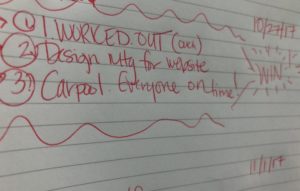 10/27/17
1. I WORKED OUT
2. Design Mtg for website
WIN!
3. Carpool. Everyone on time!
11/1/17